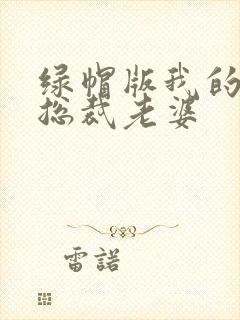 绿帽版我的
总裁老婆
雷諾